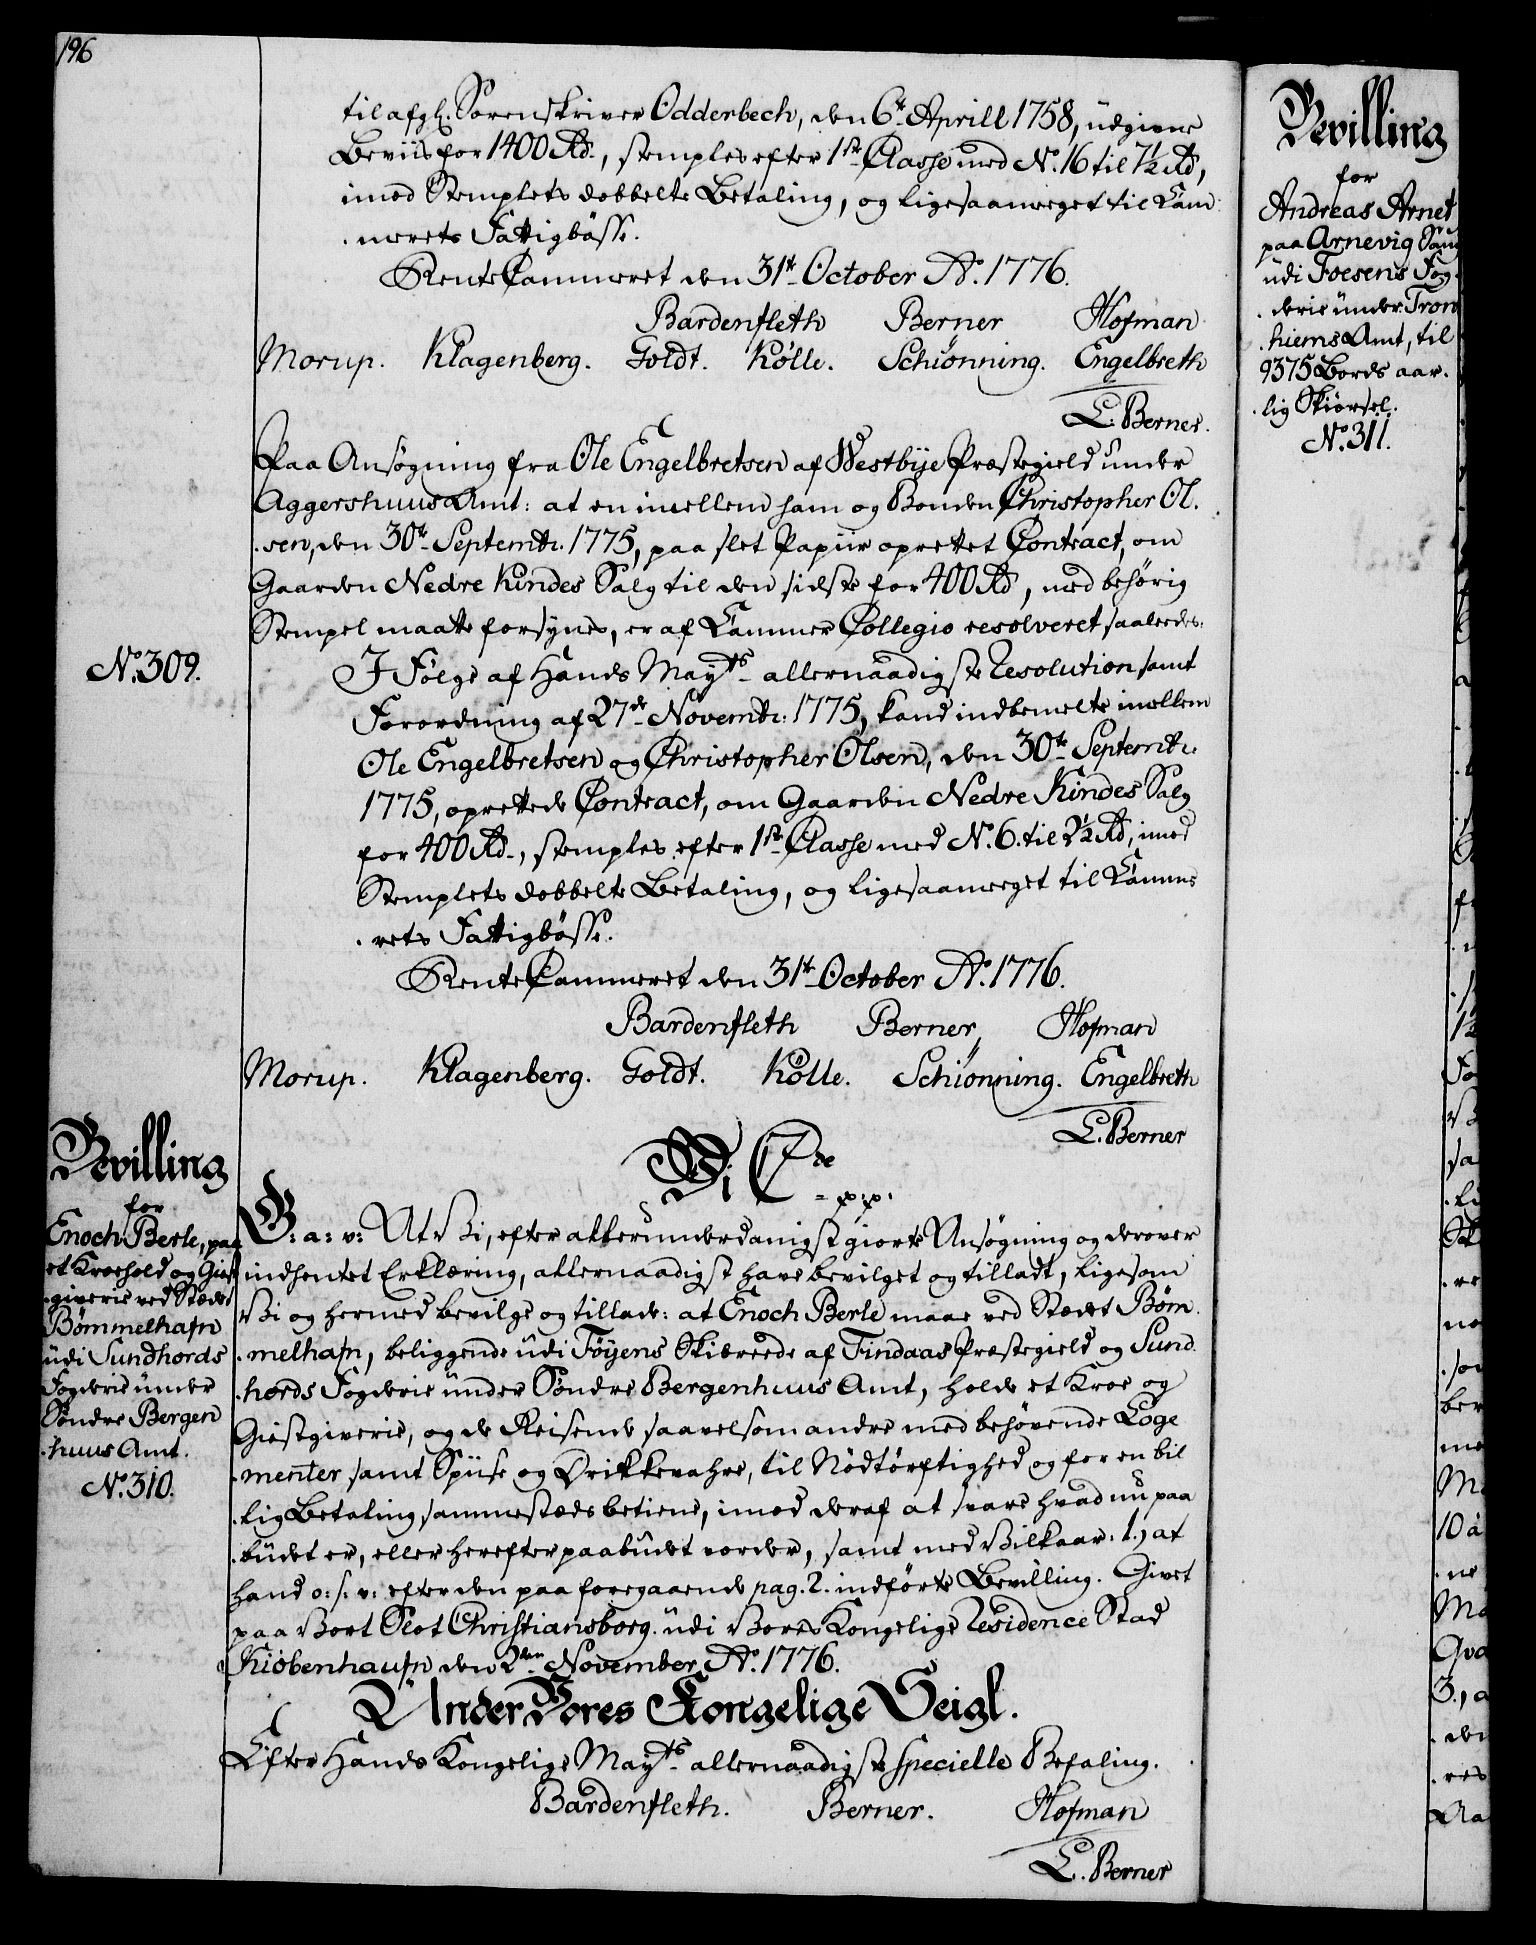 196
til afg. Sorenskriver Odderbech, den 6te Aprill 1758, udgivne
Beviis for 1400 Rd., stemples efter 1ste Classe med No. 16 til 7½ Rd,
imod Stemplets dobbelte Betaling, og ligesaameget til Cam-
merets Fattigbøsse.
RenteCammeret den 31te October Ao. 1776.
Bardenfleth Berner Hofman
Morup. Klagenberg. Goldt. Kölle. Schiønning. Engelbreth
L. Berner.
No. 309.
Paa Ansøgning fra Ole Engelbretsen af Westbye Præstegield under
Aggershuus Amt: at en imellem ham og Bonden Christopher Ol-
sen, den 30te Septembr. 1775, paa slet Papiir oprettet Contract, om
Gaarden Nedre Kindes Salg til den sidste for 400 Rd, med behørig
Stempel maatte forsynes, er af Cammer Collegio resolveret saaledes:
I Følge af Hands Mayts allernaadigste Resolution samt
Forordning af 27de Novembr. 1775, kand indbemelte imellem
Ole Engelbretsen og Christopher Olsen, den 30te Septembr.
1775, oprettede Contract, om Gaarden Nedre Kindes Salg
for 400 Rd., stemples efter 1ste Classe med No. 6. til 2½ Rd, imod
Stemplets dobbelte Betaling, og ligesaameget til Camme-
rets Fattigbøsse.
RenteCammeret den 31te October Ao. 1776.
Bardenfleth Berner Hofman
Morup. Klagenberg. Goldt. Kölle. Schiønning. Engelbreth
L. Berner
Bevilling
for
Enoch Berle, paa
et Kroehold og Giest-
giverie ved Stædet
Bømmelhafn
udi Sundhords
Fogderie under
Søndre Bergen-
huus Amt.
No. 310.
Vi C 7de p. p.
G: a: v: At Vi, efter allerunderdanigst giorte Ansøgning og derover
indhentet Erklæring, allernaadigst have bevilget og tilladt, ligesom
Vi og hermed bevilge og tillade: at Enoch Berle maae ved Stædet Bøm-
melhafn, beliggende udi Føyens Skibreede af Findaas Præstegield og Sund-
hords Fogderie under Søndre Bergenhuus Amt, holde et Kroe og
Giestgiverie, og de Reisende saavelsom andre med behøvende Loge-
menter samt Spiise og Drikkevahre, til Nødtørftighed og for en bil-
lig Betaling sammestæds betiene, imod deraf at svare hvad nu paa-
budet er, eller herefter paabudet vorder, samt med Vilkaar: 1.) at
hand o: s: v: efter den paa foregaaende pag. 2. indførte Bevilling. Givet
paa Vort Slot Christiansborg udi Vores Kongelige Residence Stad
Kiöbenhaufn den 2den November Ao. 1776.
Under Vores Kongelige Seigl.
Efter Hands Kongelige Mayts allernaadigste specielle Befaling.
Bardenfleth. Berner. Hofman
L. Berner
Bevilling
for
Andreas Arnet
paa Arnevig Saug
udi Foesens Fog-
derie under Tron-
hiems Amt, til
9375 Bords aar-
lig Skiørsel.
No. 311.